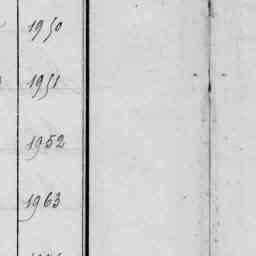 1950
1951
1952
1963